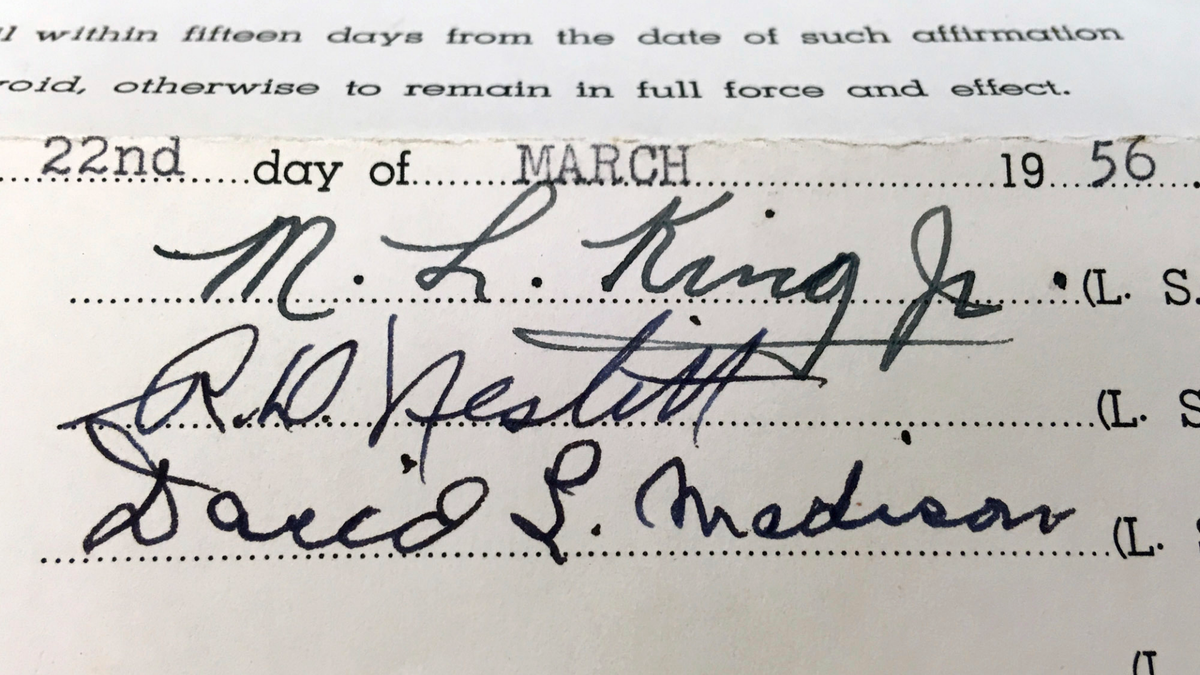 l within fifteen days from the date of such affirmation
void, otherwise to remain in full force and effect.
22nd day of MARCH 19 56
M. L. King Jr. (L. S.
R. D. Nesbitt (L. S
David L. Madison (L. S
(L